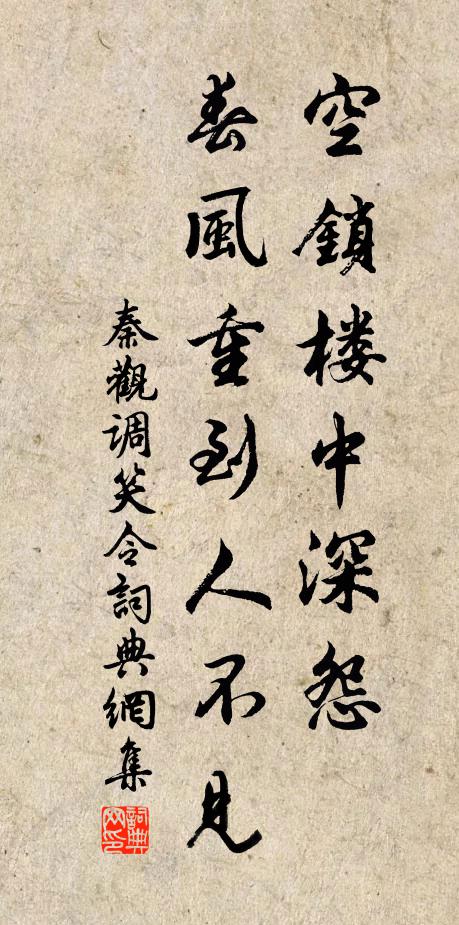 空鎖楼中深怨
春風重到人不見
秦觀调笑令詞典網集
詞典网印